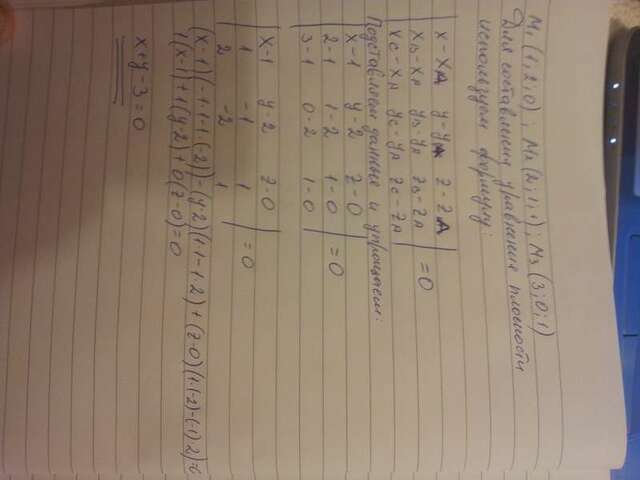 M1 (1; 2; 0); M2 (2; 1; 1); M3 (3; 0; 1)
Для составления уравнения плоскости
используем формулу:
x - xA y - yA z - zA
xB - xA yB - yA zB - zA = 0
xC - xA yC - yA zC - zA
Подставляем данные и упрощаем:
x - 1 y - 2 z - 0
2 - 1 1 - 2 1 - 0 = 0
3 - 1 0 - 2 1 - 0
x - 1 y - 2 z - 0
1 -1 1 = 0
2 -2 1
(x-1)(-1·1-1·(-2))-(y-2)(1·1-1·2)+(z-0)(1·(-2)-(-1)·2)=0
1(x-1)+1(y-2)+0(z-0)=0
x+y-3=0